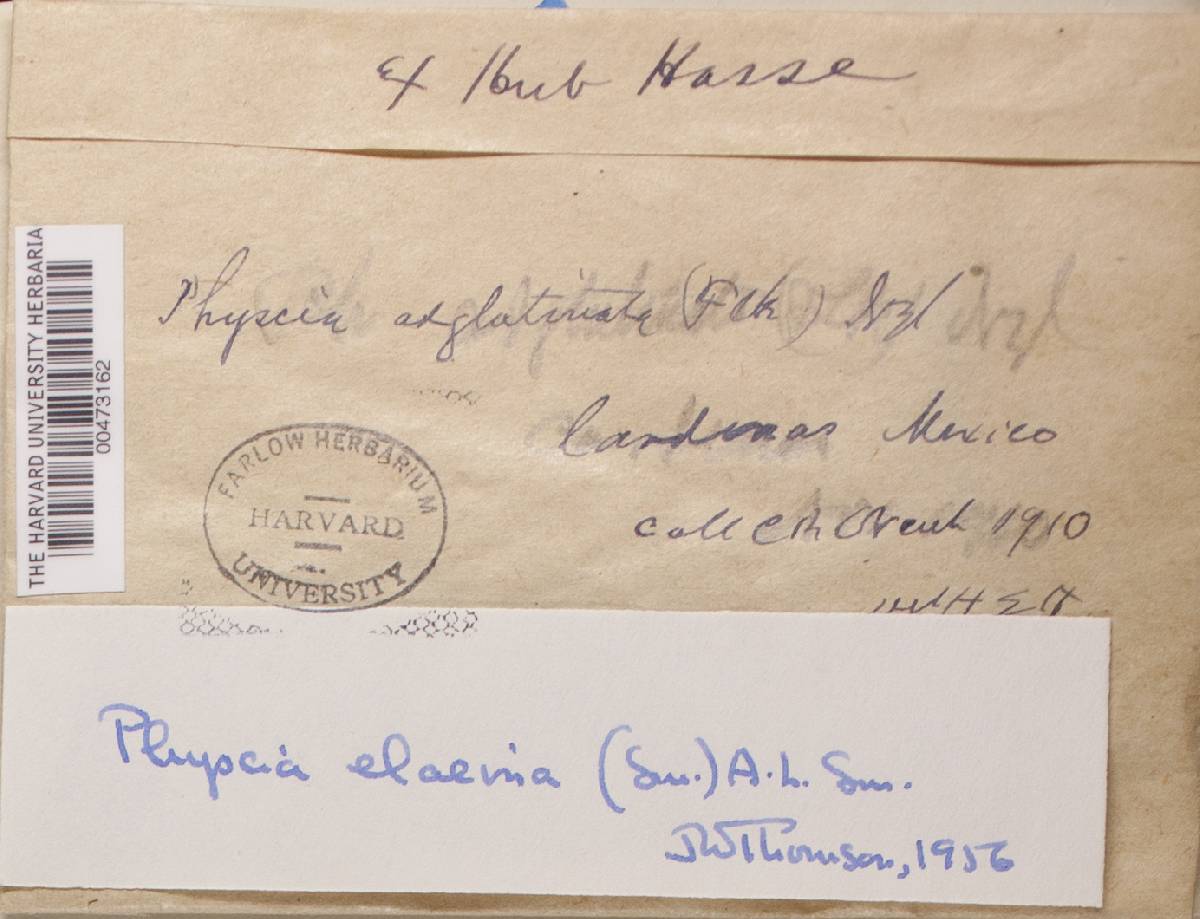 Ex Herb Hasse
THE HARVARD UNIVERSITY HERBARIA
00473162
Physcia adglutinata (Flk) Nyl
Cardenas Mexico
coll C R Orcutt 1910
FARLOW HERBARIUM
HARVARD
UNIVERSITY
Physcia elaeina (Sm.) A.L. Sm.
JWThomson, 1956